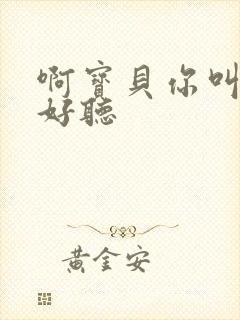 啊寶貝你叫
好聽
黃金安